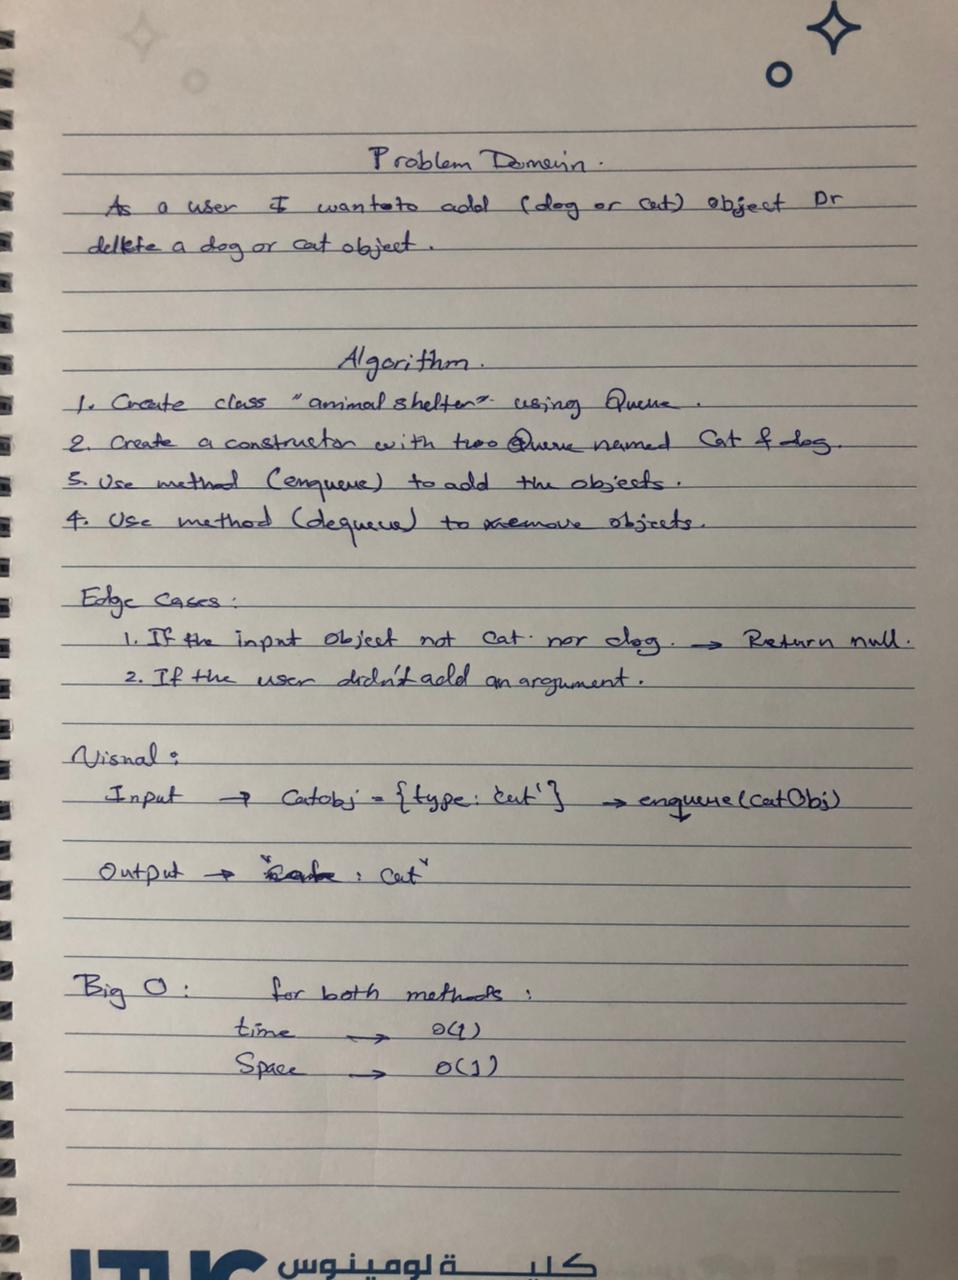 Problem Domain.
As a user I want to add (dog or cat) object Or
delete a dog or cat object.
Algorithm.
1. Create class "animal shelter" using Queue.
2. Create a constructor with two Queue named Cat & dog.
3. Use method (enqueue) to add the objects.
4. Use method (dequeue) to remove objects.
Edge Cases:
1. If the input object not cat nor dog. → Return null.
2. If the user didn't add an argument.
Visual:
Input → Catobj = {type: 'cat'} → enqueue(CatObj)
Output → " : Cat"
Big O: for both methods:
time → O(1)
Space → O(1)
LTUC كلية لومينوس